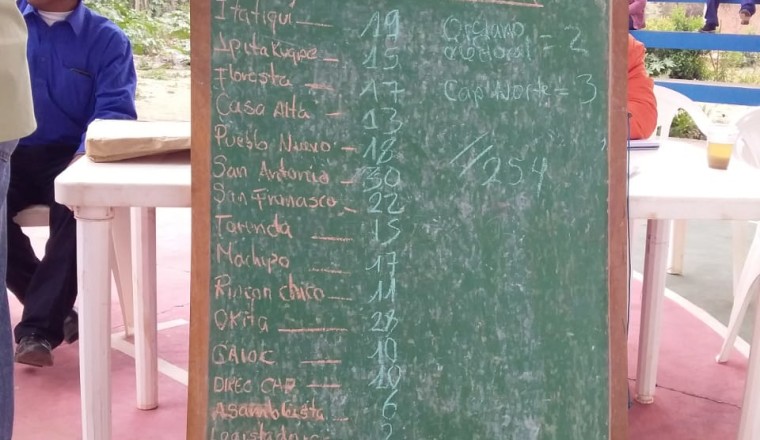 Itatiqui — 19
Ipitakuape — 15
Floresta — 17
Casa Alta — 13
Pueblo Nuevo - 18
San Antonio - 30
San Fransasco - 22
Tarenda — 15
Machipo — 17
Rincon chico — 11
Okita — 28
CAIOC — 10
DIREC CAP — 10
Asambleista — 6
2
= 2
Cap Norte = 3
//254